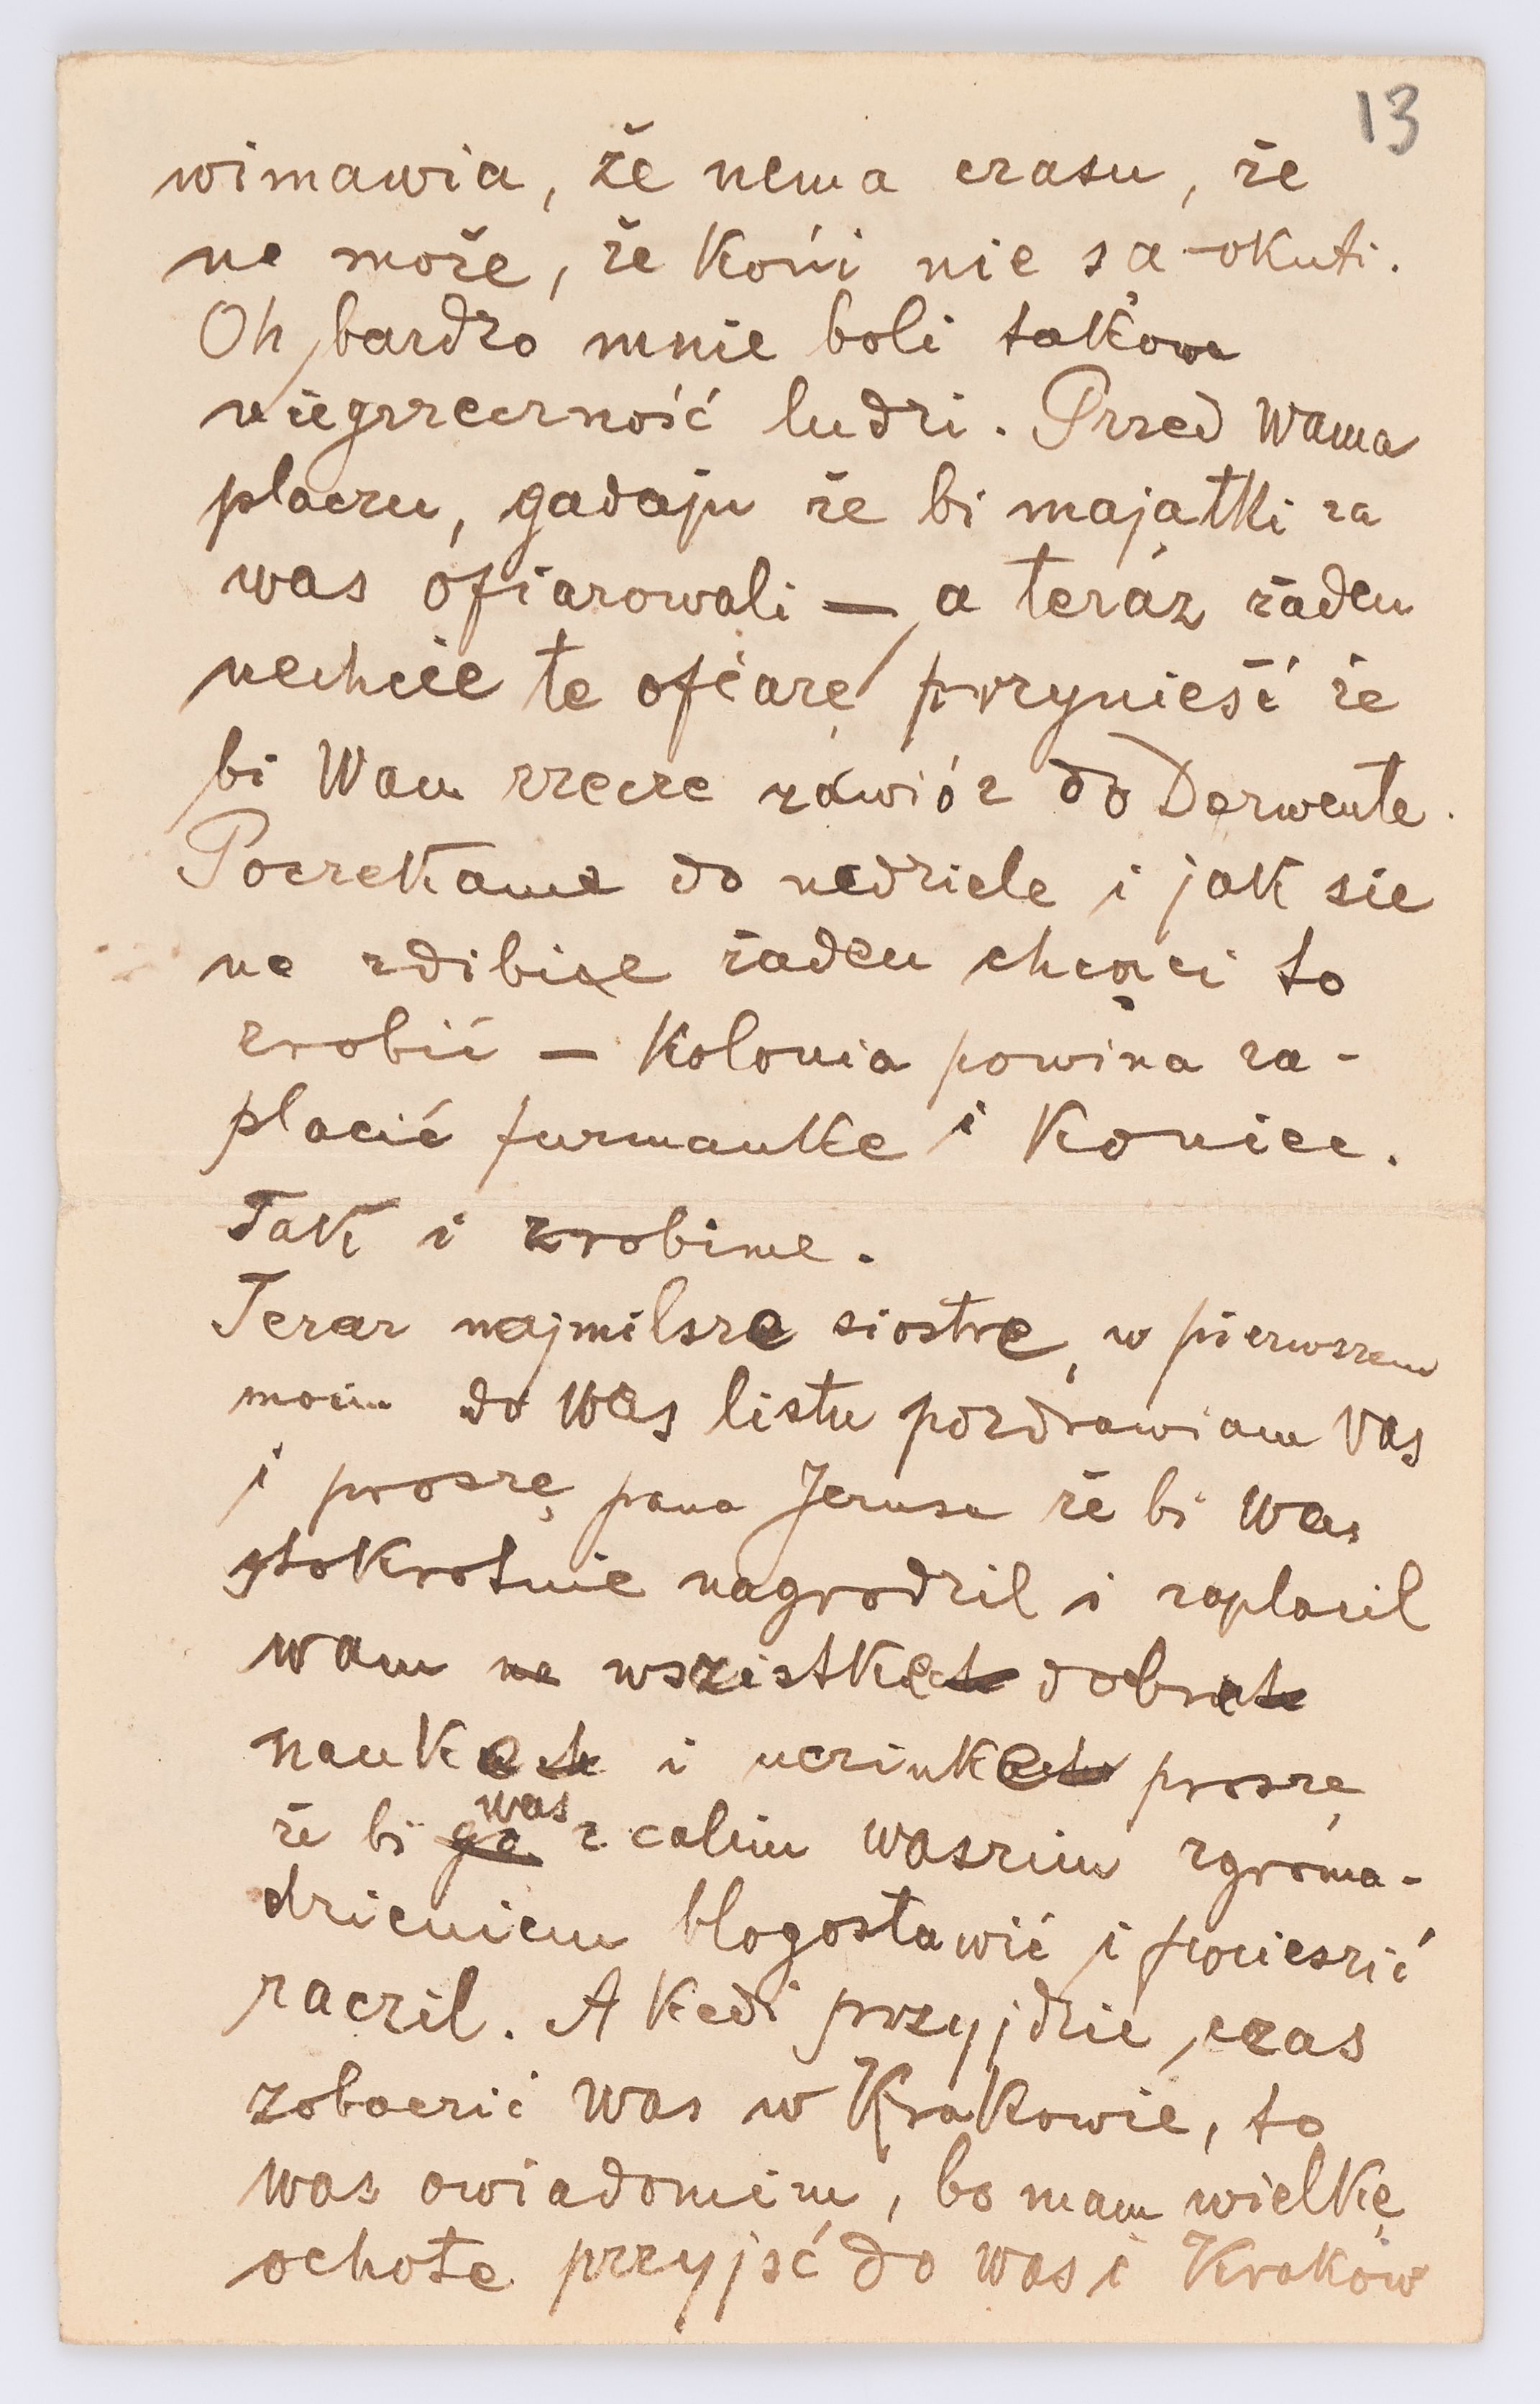 13
wimawia, že nema czasu, že
ne može, že końi nie są okuti.
Oh, bardzo mnie boli takowa
niegrzeczność ludzi. Przed Wama
placzu, gadaju že bi majątki za
was ofiarowali — a teráz žaden
nechcie te ofiarę przynieść že
bi Wam rzecze záwióz do Derwente.
Poczekame do nedziele i jak sie
ne zdibie žaden chcąci to
zrobić — Kolonia powina za-
placić furmanke i Koniec.
Tak i zrobime.
Teraz najmilsze siostre, w pierwszem
moim do Was listu pozdrawiam Vas
i proszę pana Jezusa že bi Was
stokrotnie nagrodzil i zaplacil
wam na wszistkech dobrech
naukech i uczinkech proszę
že bi ga was z calim waszim zgroma-
dzieniem blogostawić i pocieszić
raczil. A kedi przyjdzie czas
zobaczić Was w Krakowie, to
was owiadomim, bo mam wielkę
ochote przyjść do was i Kraków